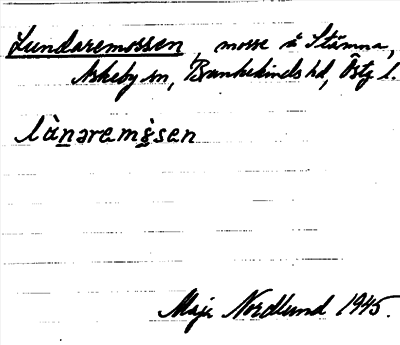 Lundaremossen, mosse å Stämna,
Askeby sn, Bankekinds hd, Östg l.
lùnaremòsen
Maja Nordlund 1945.